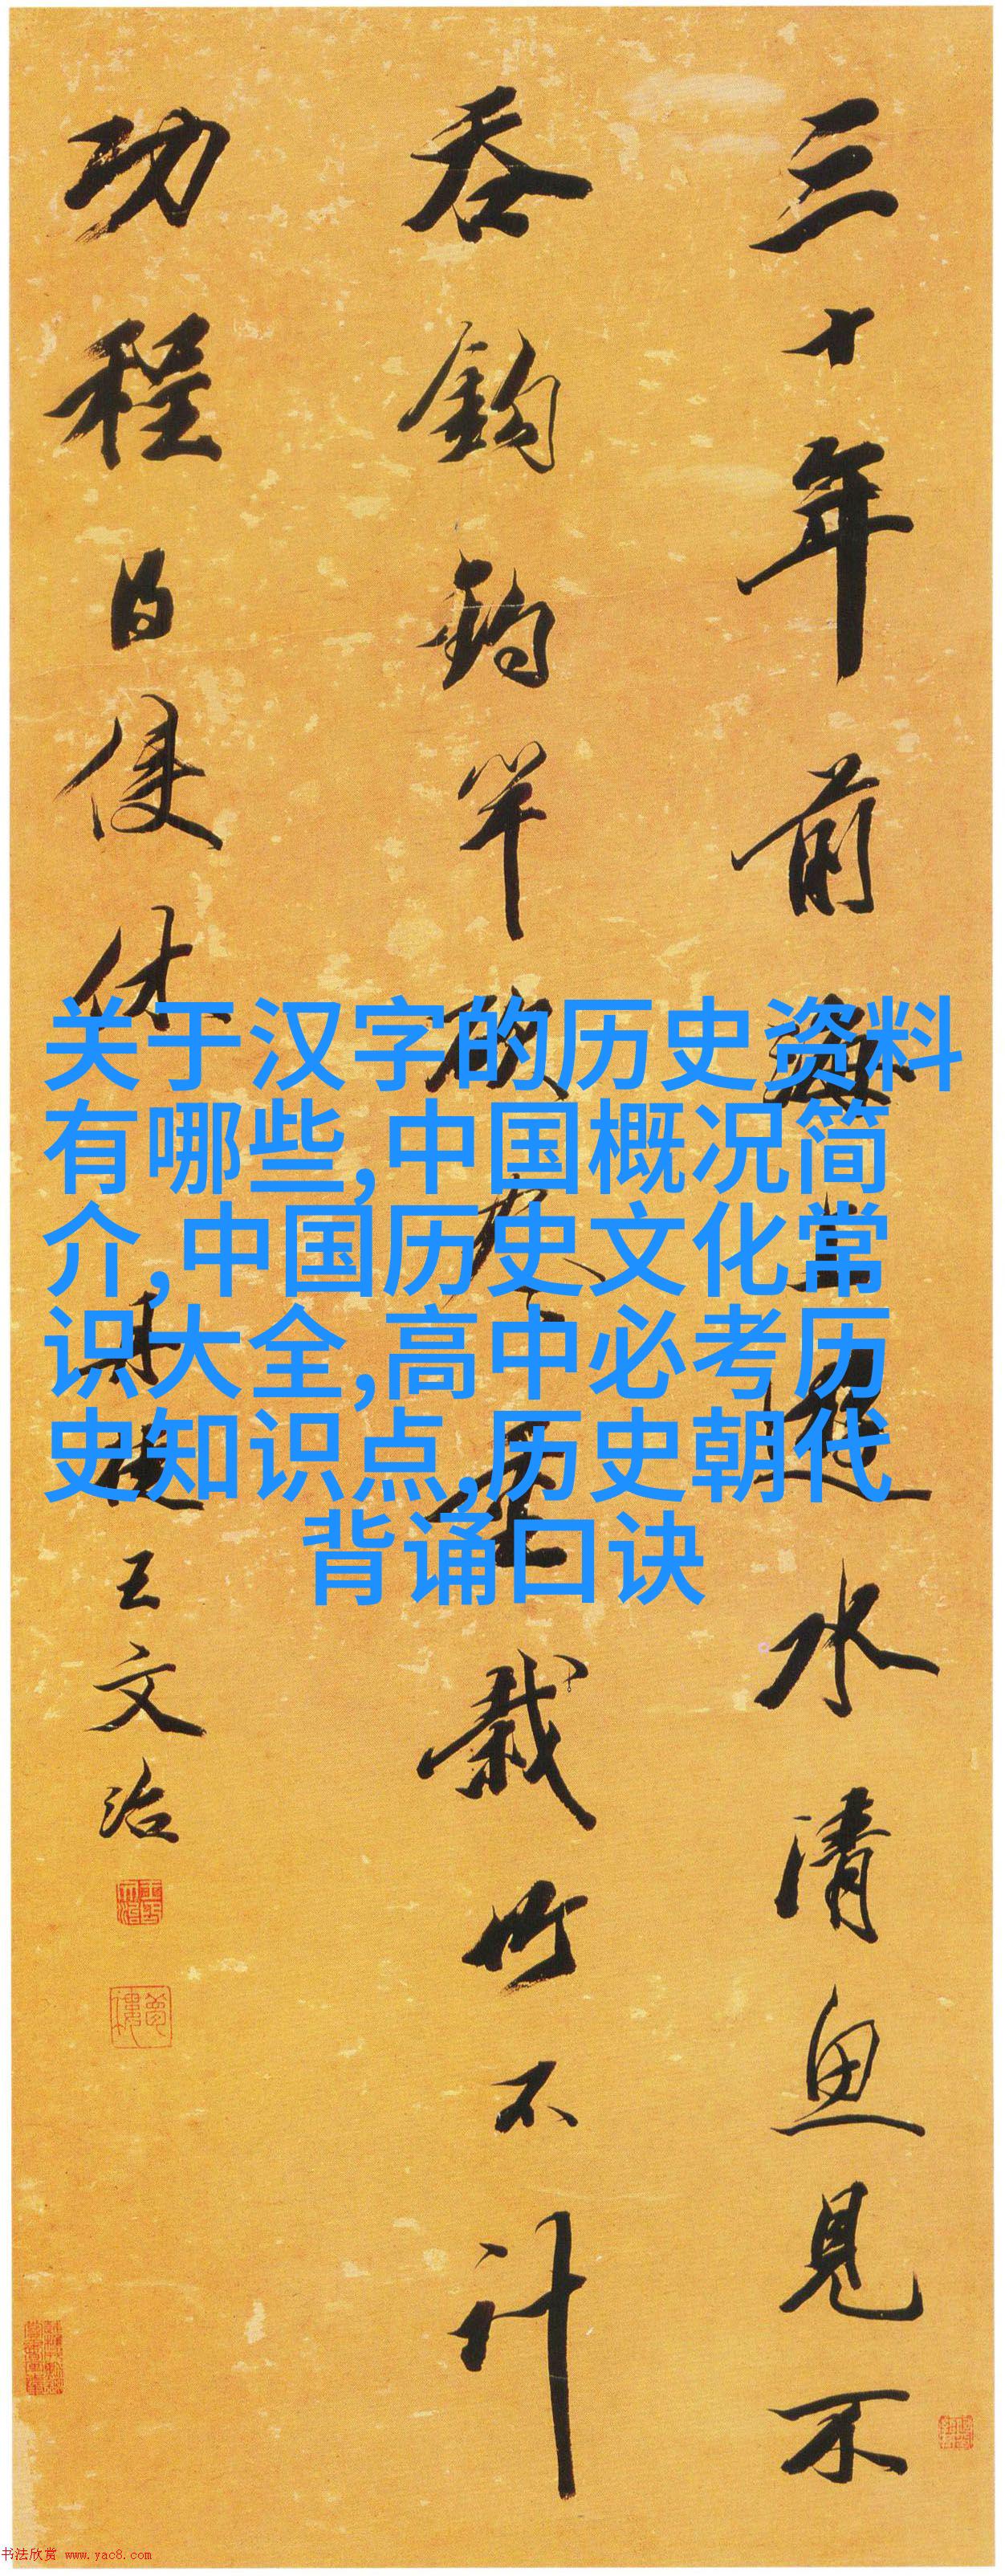 三十年前海上遊水清魚見不
吞鈎釣竿斫盡重栽竹不計
功程得便休
王文治
关于汉字的历史资料
有哪些,中国概况简
介,中国历史文化常
识大全,高中必考历
史知识点,历史朝代
背诵口诀
书法欣赏 www.yac8.com